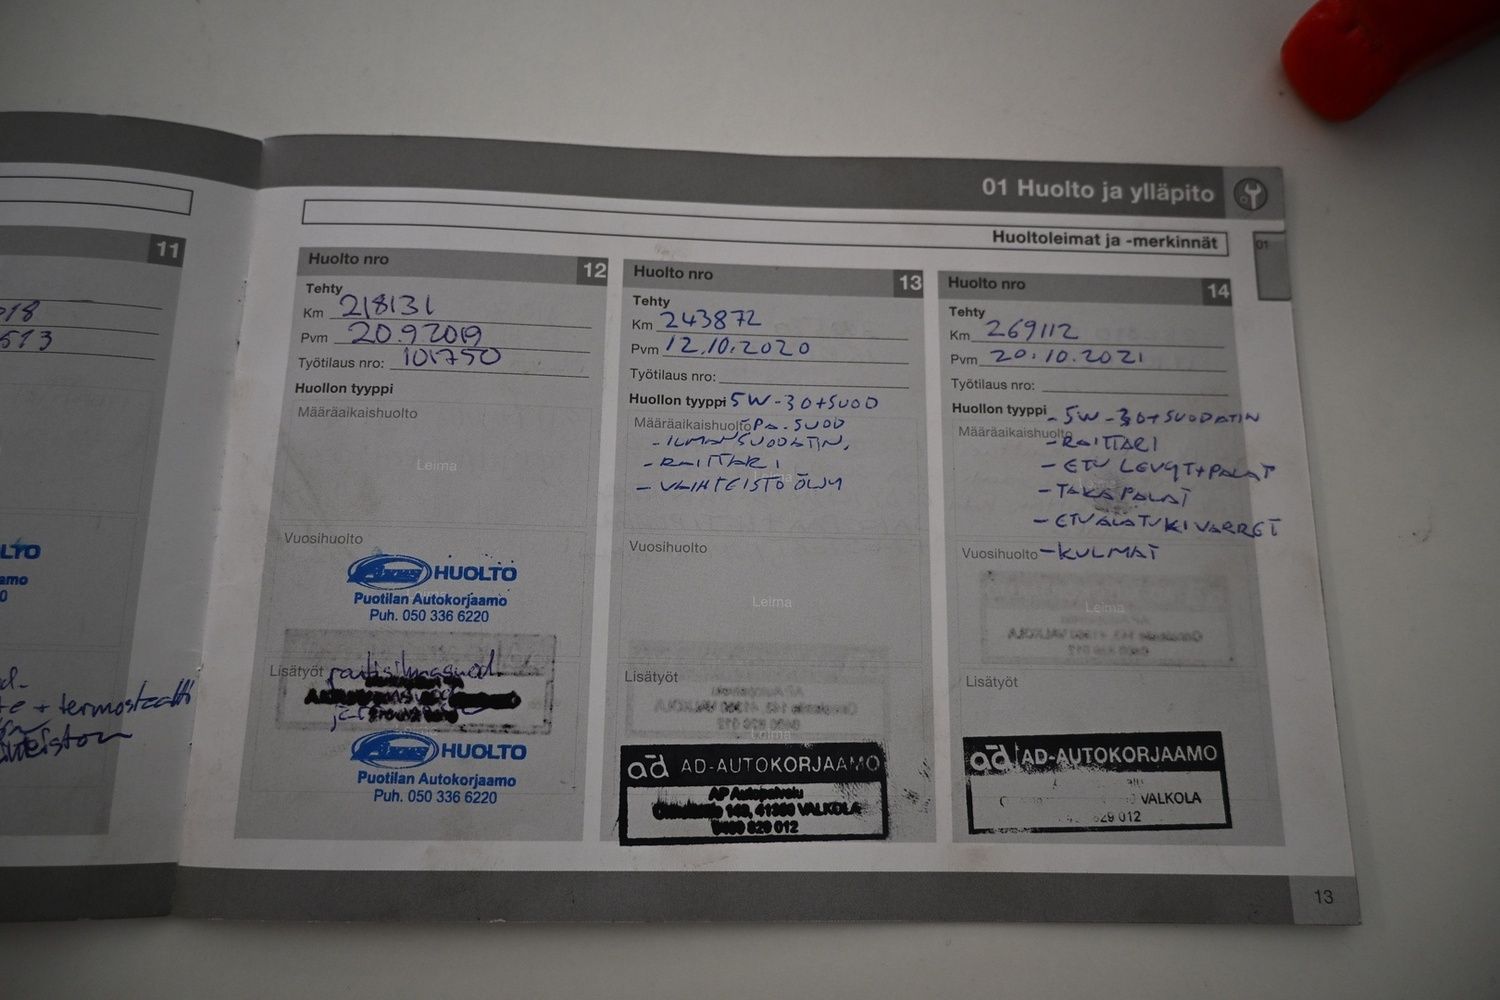 01 Huolto ja ylläpito
01
Huoltoleimat ja -merkinnät
11
18
613
LTO
amo
0
d.
+ termostaatti
Huolto nro 12
Tehty
Km 218131
Pvm 20.9.2019
Työtilaus nro: 101750
Huollon tyyppi
Määräaikaishuolto
Leima
Vuosihuolto
HUOLTO
Puotilan Autokorjaamo
Puh. 050 336 6220
Lisätyöt raitisilmasuod.
HUOLTO
Puotilan Autokorjaamo
Puh. 050 336 6220
Huolto nro 13
Tehty
Km 243872
Pvm 12.10.2020
Työtilaus nro:
Huollon tyyppi 5W-30+SUOD
Määräaikaishuolto PA.SUOD
- ILMANSUODATIN.
- RAITTARI
Leima
- VAIHTEISTO ÖLJY
Vuosihuolto
Leima
Lisätyöt
Leima
ad AD-AUTOKORJAAMO
AP Autopalvelu
41360 VALKOLA
0400 829 012
Huolto nro 14
Tehty
Km 269112
Pvm 20.10.2021
Työtilaus nro:
Huollon tyyppi - 5W-30+SUODATIN
Määräaikaishuolto - RAITTARI
- ETU LEVYT+PALAT
- TAKAPALAT
- ETUALATUKIVARRET
Vuosihuolto - KULMAT
Leima
Lisätyöt
ad AD-AUTOKORJAAMO
VALKOLA
829 012
13